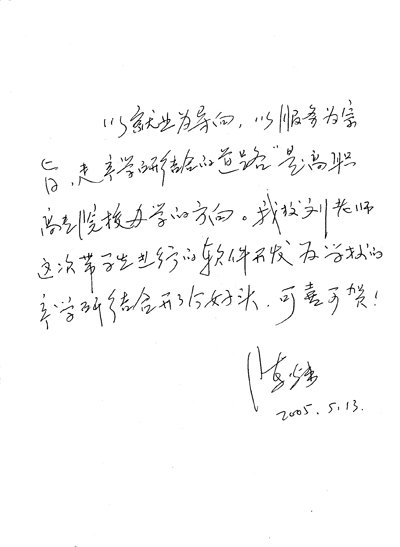 以就业为导向，以服务为宗
旨，走产学研结合的道路"是高职
高专院校办学的方向。我校刘老师
这次带学生进行的软件开发为学校的
产学研结合开了个好头，可喜可贺！
2005.5.13.